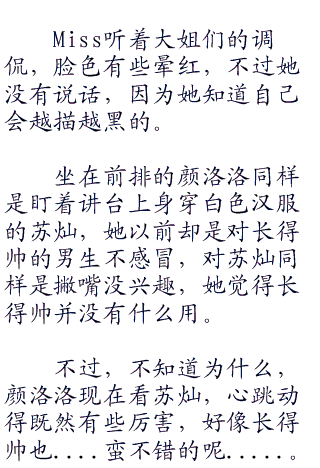 Miss听着大姐们的调
侃，脸色有些晕红，不过她
没有说话，因为她知道自己
会越描越黑的。
坐在前排的颜洛洛同样
是盯着讲台上身穿白色汉服
的苏灿，她以前却是对长得
帅的男生不感冒，对苏灿同
样是撇嘴没兴趣，她觉得长
得帅并没有什么用。
不过，不知道为什么，
颜洛洛现在看苏灿，心跳动
得既然有些厉害，好像长得
帅也....蛮不错的呢.....。